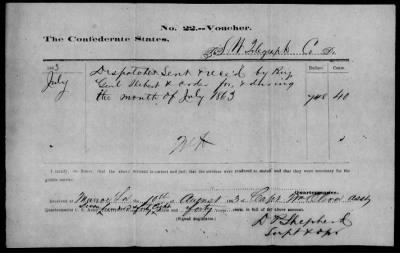 No. 22.—Voucher.
The Confederate States,
To S. W. Telegraph Co Dr.
1863 Dollars Cents.
July Despatches Sent & rec'd by Brig
Genl Hebert & order for & during
the month of July 1863 748 40
I certify that the above account is correct and just; that the services were rendered as stated and that they were necessary for the public service.
Quartermaster.
Received at Monroe La 10th of August 1863 of Capt
Seven hundred & forty Eight
Quartermaster C. S. Army, dollars and forty cents, in full of the above account.
(Signed duplicate.)
D P Shepherd
Supt & opr